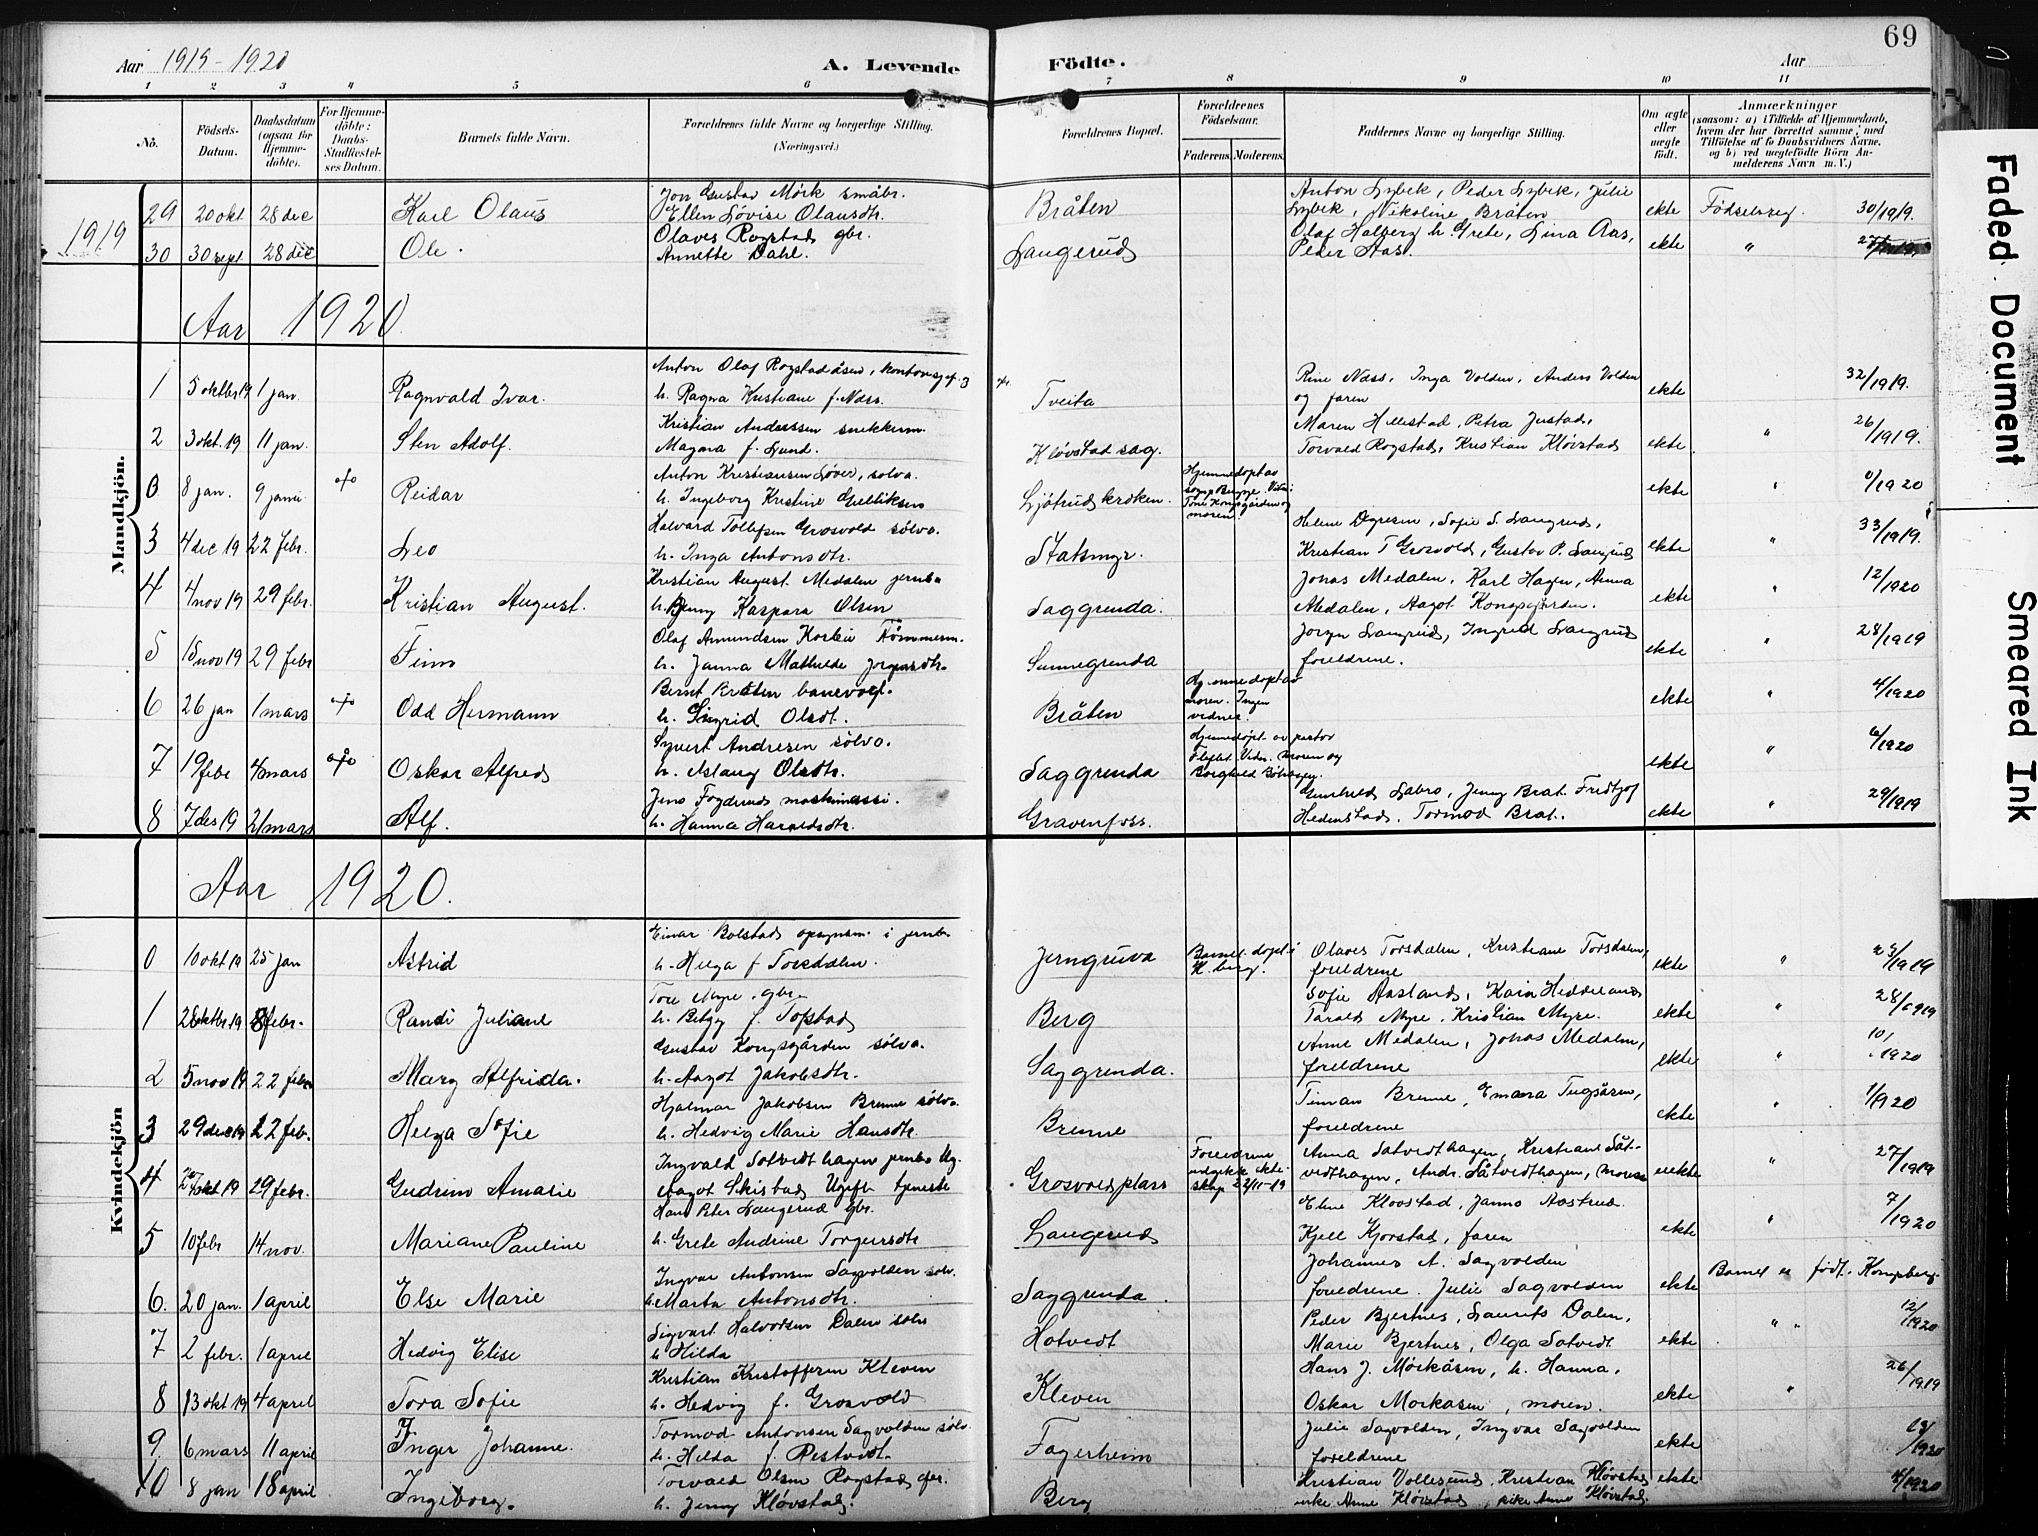 69
Aar 1919-1920
A. Levende Födte.
Aar
1 2 3 4 5 6 7 8 9 10 11
No.
Födsels-Datum.
Daabsdatum (ogsaa for Hjemme-döbte).
For Hjemme-döbte: Daabs-Stadfæstel-ses Datum.
Barnets fulde Navn.
Forældrenes fulde Navne og borgerlige Stilling.
(Næringsvei.)
Forældrenes Bopæl.
Forældrenes Födselsaar.
Faderens. Moderens.
Faddernes Navne og borgerlige Stilling.
Om ægte eller uægte födt.
Anmærkninger
(saasom: a) i Tilfælde af Hjemmedaab, hvem der har forrettet samme, med Tilföielse af to Daabsvidners Navne. og b) ved uægtefödte Börn An-melderens Navn m. V.)
1919
29 20 okt 28 dec Karl Olaus
Jon Gustav Mörk småbr.
Ellen Lovise Olausdtr.
Bråten
Anton Lybek, Peder Lybek, Julie
Lybek, Nikoline Bråten
ekte Födselsreg. 30/1919.
30 30 sept 28 dec Ole.
Olaves Rogstad gbr.
Annette Dahl.
Langerud
Olaf Halberg h. Grete, Lina Aas,
Peder Aas.
ekte "
Aar 1920
Mandkjön.
1 5 oktbr 19 1 jan Ragnvald Ivar.
Anton Olaf Rogstadåsen,
h. Ragna Kristiane f. Næss.
Tveita
Rine Næss, Inga Volden, Anders Volden
og faren
ekte 32/1919.
2 3 okt. 19 11 jan. Sten Adolf.
Kristian Anderssen snekkerm.
Magna f. Lund.
Kløvstad sag.
Maren Hillestad, Petra Justad,
Torvald Rogstad, Kristian Kløvstad
ekte " 26/1919.
0 8 jan. 9 jan Reidar
Anton Kristiansen Löver, sølva.
h. Ingeborg Kristine Gulliksen
Ljøtrudskroken.
Hjemmedøpt av
moren.
ekte " 6/1920
3 4 dec 19 22 febr. Leo
Halvard Tollefsen Grosvold sølva.
h. Inga Antonsdtr.
Statsmyr.
Helene Dyresen, Sofie S. Langrud,
Kristian T Grosvold, Gustav P. Langrud
ekte " 33/1919.
4 4 nov 19 29 febr. Kristian August.
Kristian August Medalen jernba
h. Jenny Kaspara Olsen
Saggrenda.
Jonas Medalen, Karl Hagen, Anna
Medalen, Aagot Kongsgården.
ekte " 12/1920
5 15 nov 19 29 febr Finn
Olaf Amundsen Korbøe Tømmerm.
h. Janna Mathilde Jørgensdtr.
Sunnegrenda
Jørgen Langrud, Ingrid Langrud
foreldrene.
ekte " 28/1919
6 26 jan 1 mars Odd Hermann
Bernt Bråten banevogt.
h. Sigrid Olsdt.
Bråten
Hjemmedøpt av
moren. Ingen
vidner.
ekte " 4/1920
7 19 febr 4 mars Oskar Alfred
Syvert Andresen sølva.
h. Aslaug Olsdtr.
Saggrenda
Hjemmedøpt av pastor
Vidn. moren og
ekte " 6/1920
8 7 des 19 21 mars Alf.
Jens Fogderud maskinassi.
h. Hanna Haraldsdtr.
Gravenfoss.
Gunhild Labro, Jenny Brat. Fredtjof
Hedenstad, Tormod Brat.
ekte " 29/1919
Aar 1920.
Kvindekjön
0 10 okt 19 25 jan Astrid
Einar Bolstad opsynsm. i jernb.
h. Helga f Torsdalen.
Jerngruva
Barnet døpt i
K. berg.
Olaves Torsdalen, Kristiane Torsdalen,
foreldrene
ekte " 25/1919
1 26 oktbr. 19 8 febr. Randi Juliane
Tore Myre. gbr.
h. Betzy f. Topstad
Berg
Sofie Aasland, Karen Heddeland
Tarald Myre. Kristian Myre.
ekte " 28/1919
2 5 nov 19 22 febr Mary Alfrida.
Gustav Kongsgården sølva.
h. Aagot Jakobsdtr.
Saggrenda.
Anne Medalen, Jonas Medalen,
foreldrene
ekte " 10/1920
3 29 dec 19 22 feb. Helga Sofie
Hjalmar Jakobsen Brenne sølva
h. Hedvig Marie Hansdtr.
Brenne
Timan Brenne, Emma Tugåsen,
foreldrene
ekte " 1/1920
4 okt 19 29 febr. Gudrun Amalie
Ingvald Sotvedthagen jernba Ug.
Aagot Skistad Ugift tjeneste
Grosvoldplass
Foreldrene
indgikk ekte-
skap 22/11-19
Anna Sotvedthagen, Kristiane Såt-
vedthagen, Andr. Såtvedthagen, Moren
uekte " 27/1919
5 10 febr 14 nov. Mariane Pauline
Hans Peter Langerud gbr.
h. Grete Andrine Torgersdtr
Langerud
Eline Klovstad, Janna Aastrud.
Kjell Kjorstad, faren
ekte " 7/1920
6. 20 jan. 1 april Else Marie
Ingvar Antonsen Sagvolden sølv.
h. Marta Antonsdtr.
Saggrenda.
Johannes A. Sagvolden
foreldrene. Julie Sagvolden
ekte Barnet er født. Kongsberg.
7 2 febr. 1 april Hedvig Elise
Sigvart Halvorsen Dalen sølv
h Hilda
Hotvedt
Peder Bjertnes, Laurits Dalen,
Marie Bjertnes, Olga Sotvedt
ekte " " 12/1920
8 13 okt 19 4 april Tora Sofie
Kristian Kristoffersen Kleven
h. Hedvig f. Grosvold
Kleven
Hans J. Mörkåsen, h. Hanna,
Oskar Morkåsen, moren.
ekte " 26/1919
9. 6 mars 11 april Inger Johanne.
Tormod Antonsen Sagvolden sølv.
h. Hilda f. Restvedt.
Fagerheim
Julie Sagvolden, Ingvar Sagvolden
foreldrene
ekte 13/1920
10 8 jan 18 april Ingeborg.
Torvald Olsen Rogstad gbr.
h. Jenny Kløvstad.
Berg
Kristian Vollesund. Kristian Kløvstad
enke Anne Kløvstad, pike Anne Kløvstad
ekte 4/1920
Faded Document
Smeared Ink